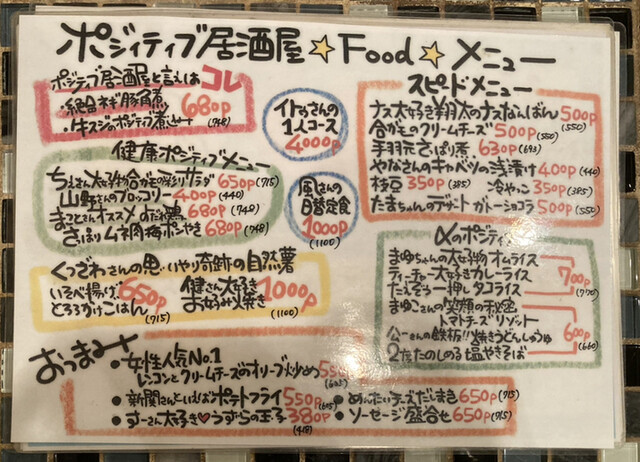 ポジティブ居酒屋☆Food☆メニュー
ポジティブ居酒屋と言えばコレ
・絶品ネギ豚角煮
・牛スジのポジティブ煮込み
680P
(748)
イトウさんの
1人コース
4000P
スピードメニュー
ナス大好き翔太のナスなんばん 500P (550)
合がものクリームチーズ 500P (550)
手羽元さっぱり煮 630P (693)
やなさんのキャベツの浅漬け 400P (440)
枝豆 350P (385) 冷やっこ 350P (385)
たまちゃんのデザート ガトーショコラ 500P (550)
健康ポジティブメニュー
ちえさん大好物合ガモの彩りサラダ 650P (715)
山野さんのブロッコリー 400P (440)
まことさんオススメ よだれ鶏 680P (748)
さっぱりムネ肉梅ポン やき 680P (748)
風さんの
日替定食
1000P
(1100)
〆のポジティブ
まゆちゃんの大好物オムライス
ティーチャー大好きカレーライス
たえぞう一押しタコライス
700P
(770)
まゆこさんの笑顔の秘密
トマトチーズリゾット
公一さんの鉄板!!焼きうどんしょうゆ
2たたのしめる塩やきそば
600P
(660)
くつざわさんの思いやり奇跡の自然薯
いそべ揚げ
とろろかけごはん
650P
(715)
健さん大好き
お好み焼き 1000P
(1100)
おつまみ
・女性人気No.1
レンコンとクリームチーズのオリーブ炒め
・新聞さんといえばポテトフライ 550P (605)
・すーさん大好き♡うずらの玉子 380P
(418)
・めんたいチーズだしまき 650P (715)
・ソーセージ盛合せ 650P (715)